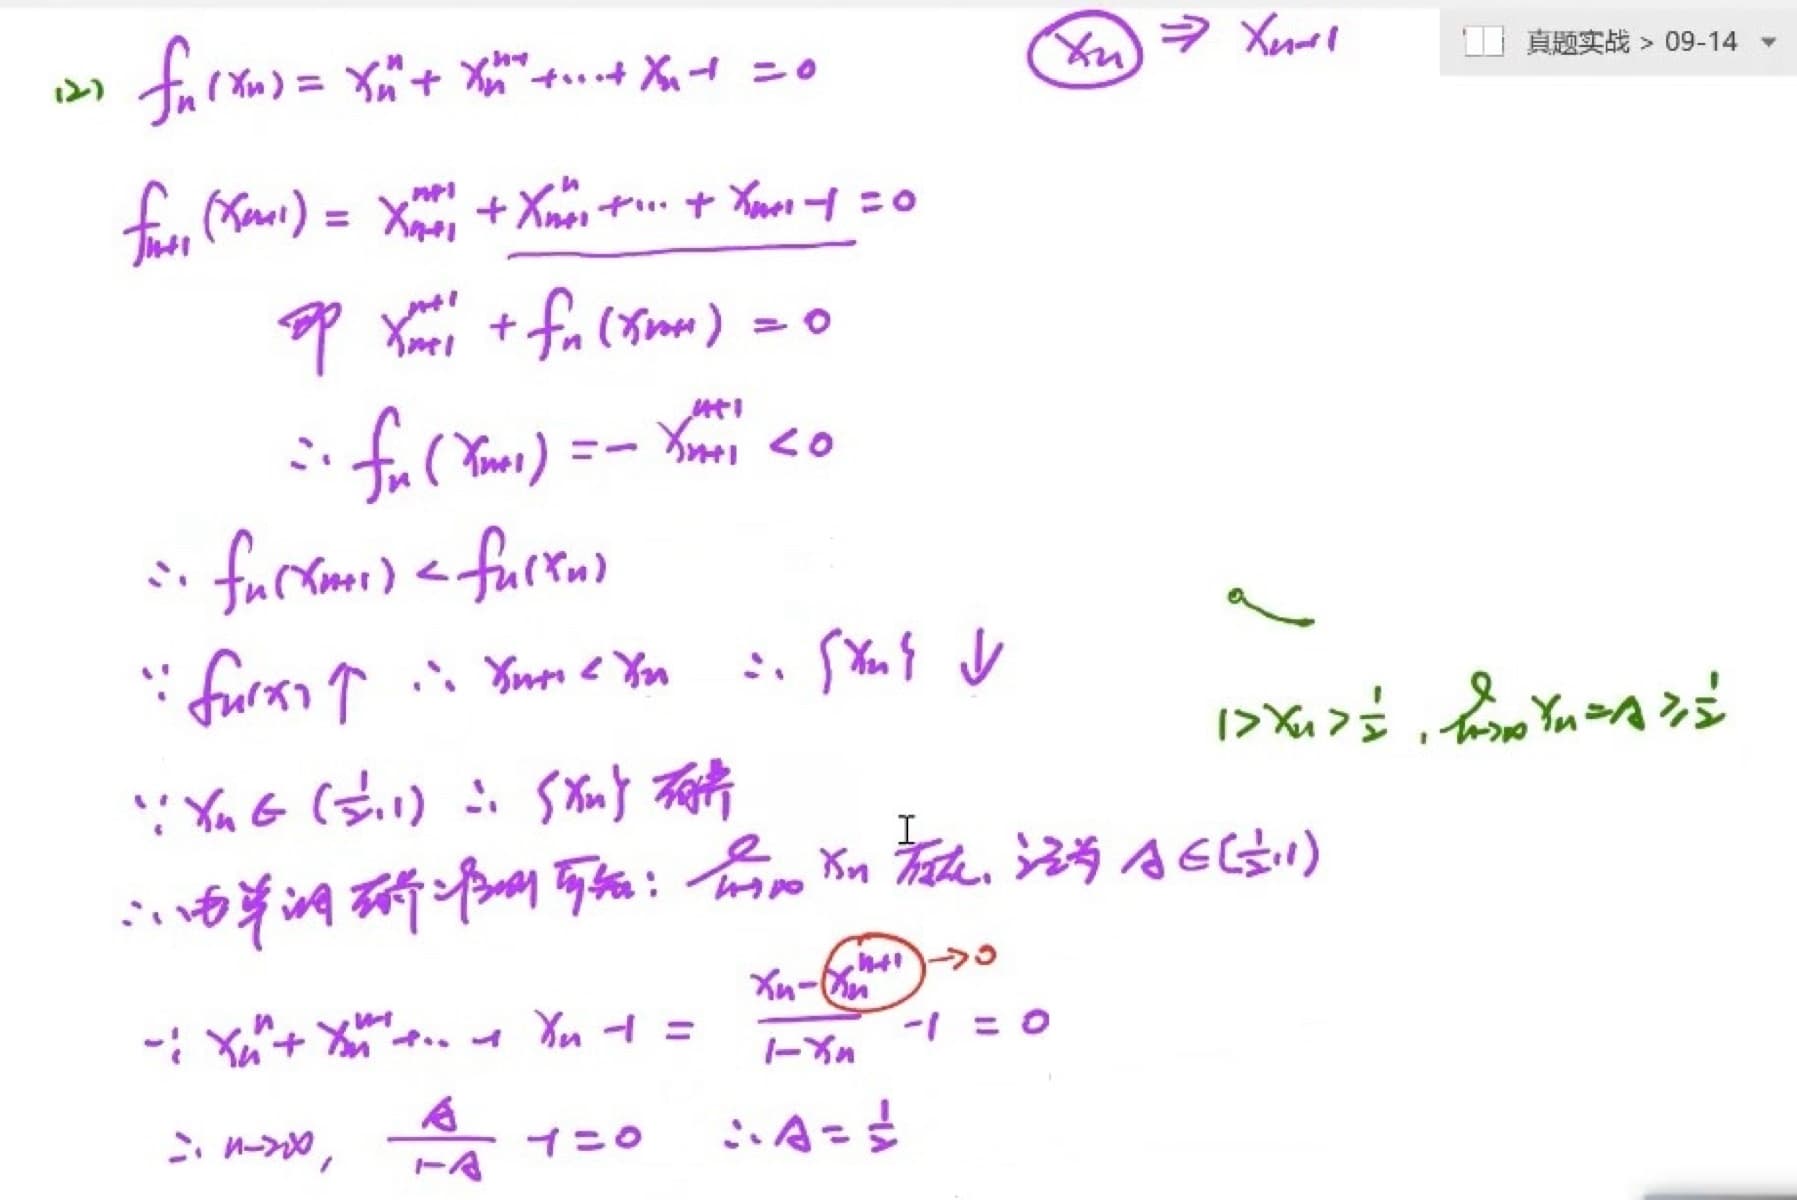 真题实战 > 09-14
(2) fₙ(xₙ) = xₙⁿ + xₙⁿ⁻¹ + ⋯ + xₙ - 1 = 0
xₙ ⇒ xₙ₊₁
fₙ₊₁(xₙ₊₁) = xₙ₊₁ⁿ⁺¹ + xₙ₊₁ⁿ + ⋯ + xₙ₊₁ - 1 = 0
即 xₙ₊₁ⁿ⁺¹ + fₙ(xₙ₊₁) = 0
∴ fₙ(xₙ₊₁) = - xₙ₊₁ⁿ⁺¹ < 0
∴ fₙ(xₙ₊₁) < fₙ(xₙ)
∵ fₙ(x) ↑ ∴ xₙ₊₁ < xₙ ∴ {xₙ} ↓
1 > xₙ > 1/2 , lim n→∞ xₙ = A ≥ 1/2
∵ xₙ ∈ (1/2, 1) ∴ {xₙ} 有界
∴ 由单调有界准则可知: lim n→∞ xₙ 存在, 记为 A ∈ [1/2, 1)
∵ xₙⁿ + xₙⁿ⁻¹ + ⋯ + xₙ - 1 = (xₙ - xₙⁿ⁺¹)/(1 - xₙ) - 1 = 0
→ 0
∴ n→∞, A/(1-A) - 1 = 0 ∴ A = 1/2